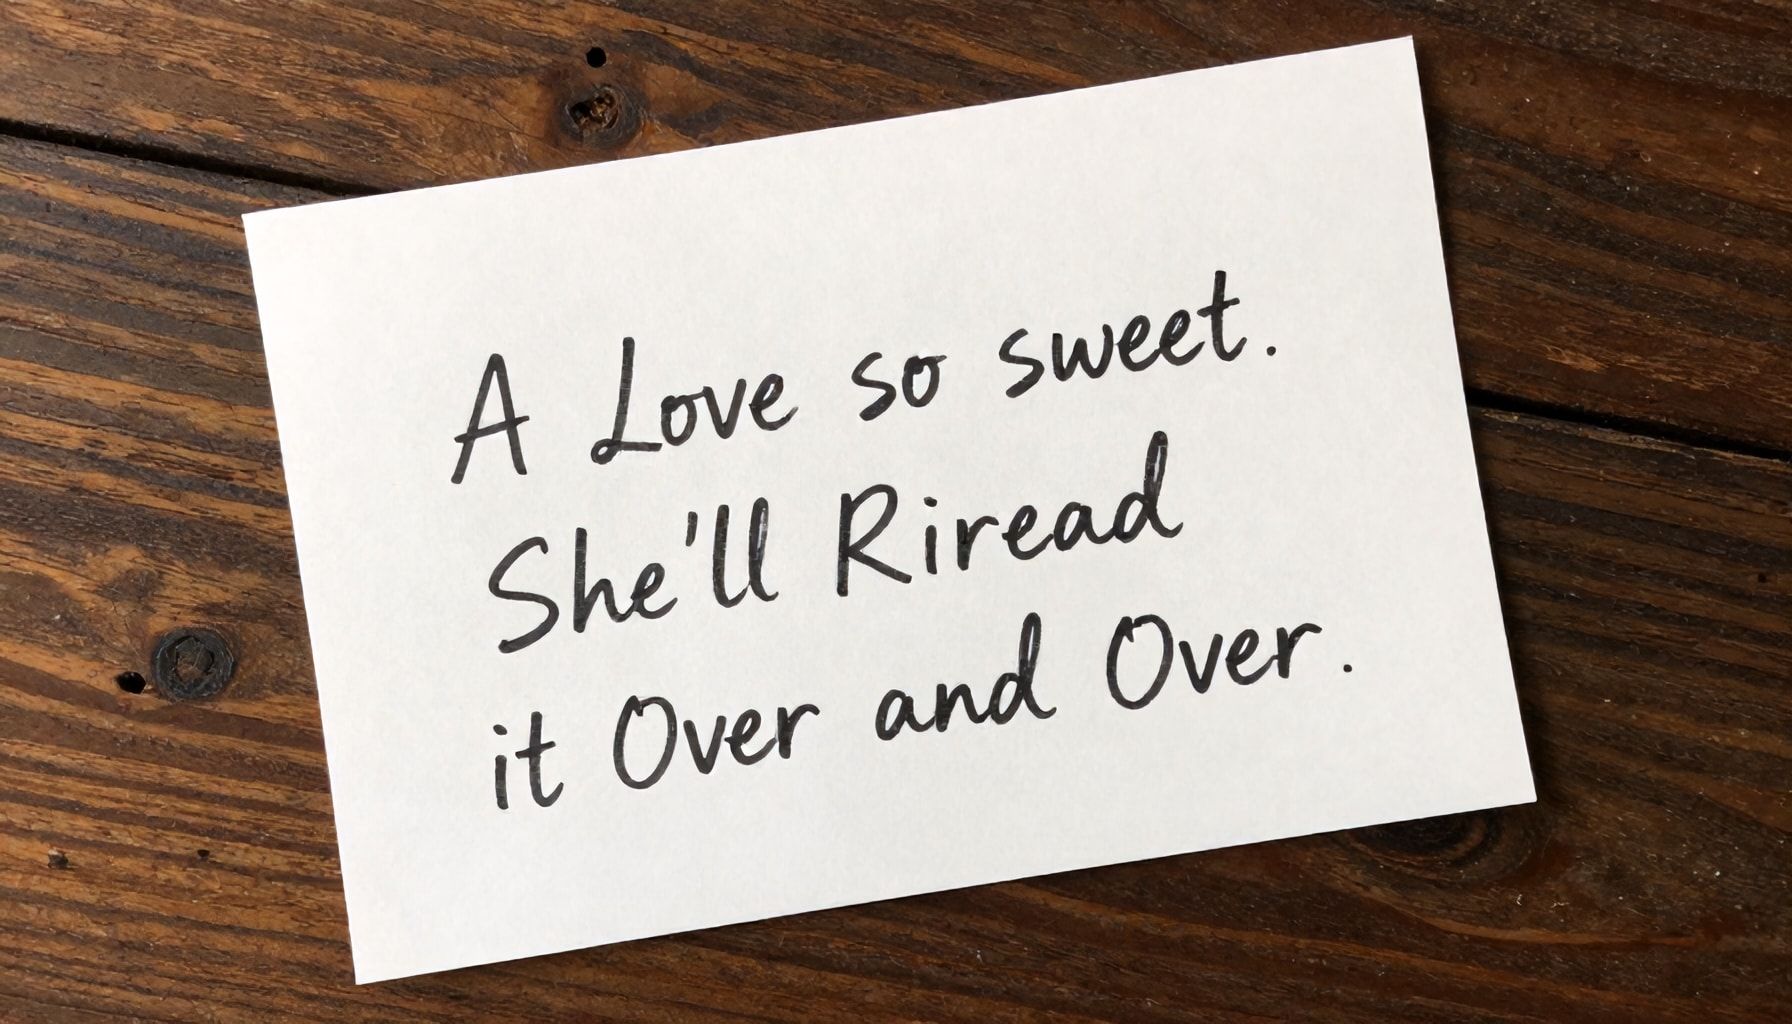 A Love so sweet.
She'll Riread
it Over and Over.